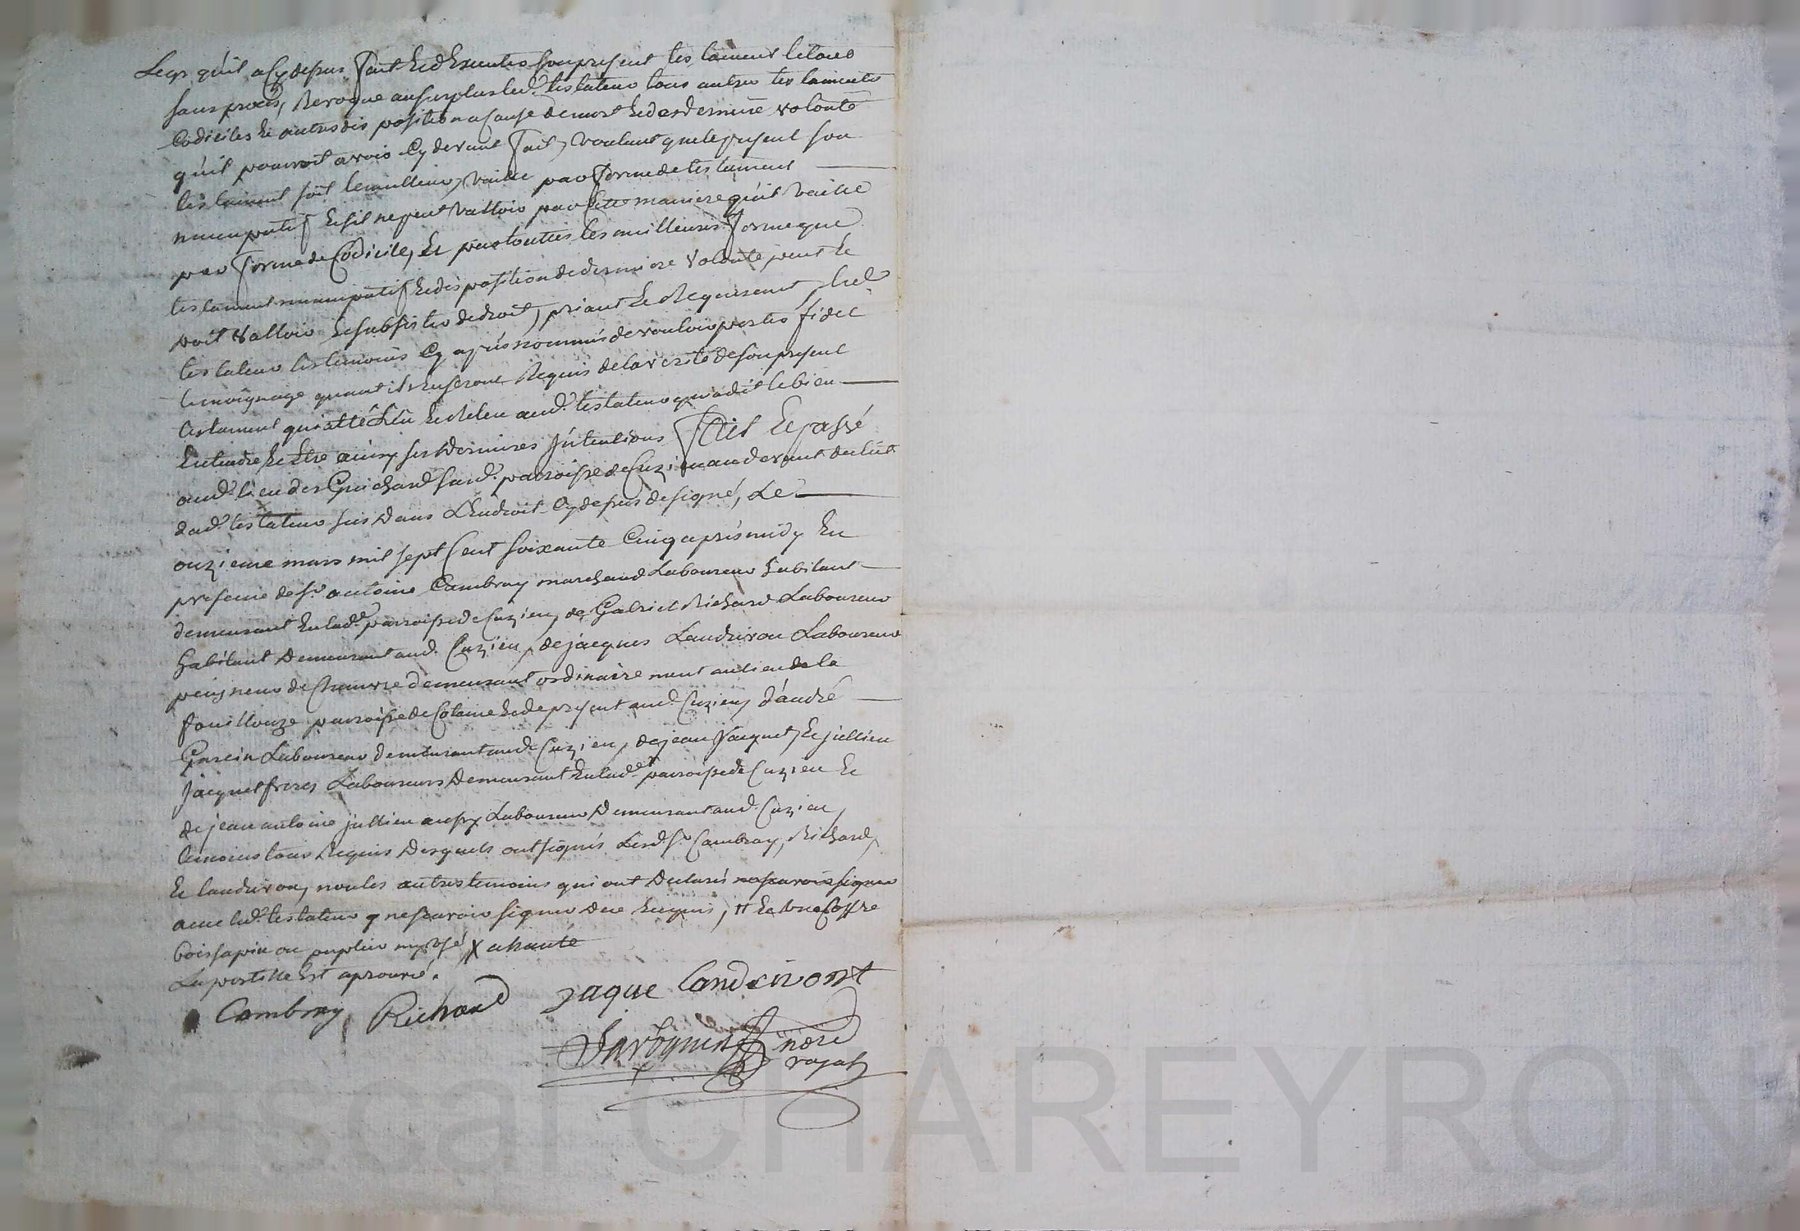 Legs quil a Cy depus fait Et d'Exeuter son present testament le tout
sans procés, Revoque au surplus led. testateur tous autres testaments
Codiciles Et autres dis position a Cause de mort Et de derniere volonté
qu'il pourroit avoir Cy devant fait, voulant que le present son
testament soit le meilleur, vaille par forme de testament
nuncupatif Et sil ne peut valloir par Cette maniere quil vaille
par forme de Codicile, Et par touttes les meilleures forme que
testament nuncupatif Et dis position de derniere volonté peut Et
doit valloir Et subsister de droit, priant Et Requerant led.
testateur les temoins Cy aprés nommés de vouloir porter fidel
temoignage quant ils En seront Requis de la verité de son present
testament qui atté Lû Et Releu aud. testateur qui a dit le bien
Entendre Et Etre ainsy ses Dernieres Intentions fait Et passé
aud. lieu des Guichard susd. parroisse de Cuzieu au devant du lit
dud. testateur sis Dans L'Endroit Cy depus designé, Le
onzieme mars mil sept Cent soixante Cinq aprés midy En
presence de sr. antoine Cambray marchand Laboureur habitant
demeurant En lad. parroisse de Cuzieu, de Gabriel Richard Laboureur
habitant Demeurant aud. Cuzieu, de jacques Landrivon Laboureur
peigneur de Chanvre demeurant ordinairement au lieu de la
fouillouze parroisse de Et de present aud. Cuzieu, d'andré
Garein Laboureur demeurant aud. Cuzieu, de jean Jacquet, Et jullien
jacquet freres Laboureurs Demeurant En lad. parroisse de Cuzieu Et
de jean antoine jullien aussy Laboureur Demeurant aud. Cuzieu,
temoins tous Requis Desquels ont signés Lesd. sr. Cambray, Richard,
Et landrivon, non les autres temoins qui ont Declarés ne scavoir signer
avec led. testateur p ne scavoir signer De ce Enquis, # Et une Coffre
bois sapin ou
La postille Est aprouvé.
Cambray Richard jaque landrivont
nore
royal
Pascal CHAREYRON